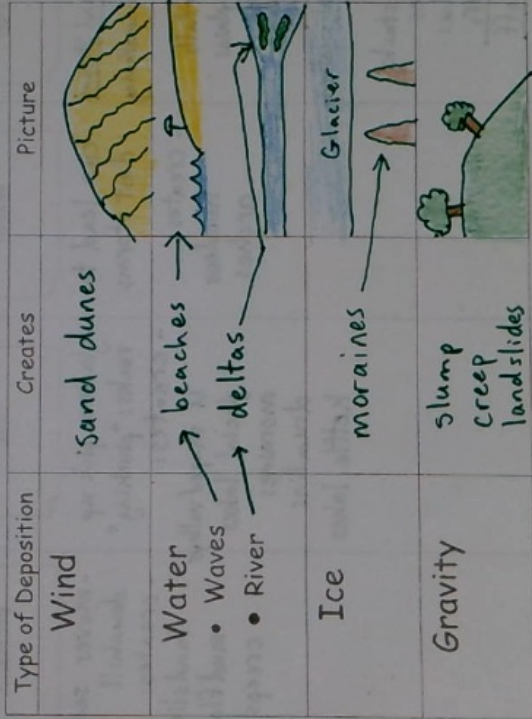 Type of Deposition Creates Picture
Wind Sand dunes
Water
• Waves → beaches →
• River → deltas
Ice moraines Glacier
Gravity slump
creep
landslides